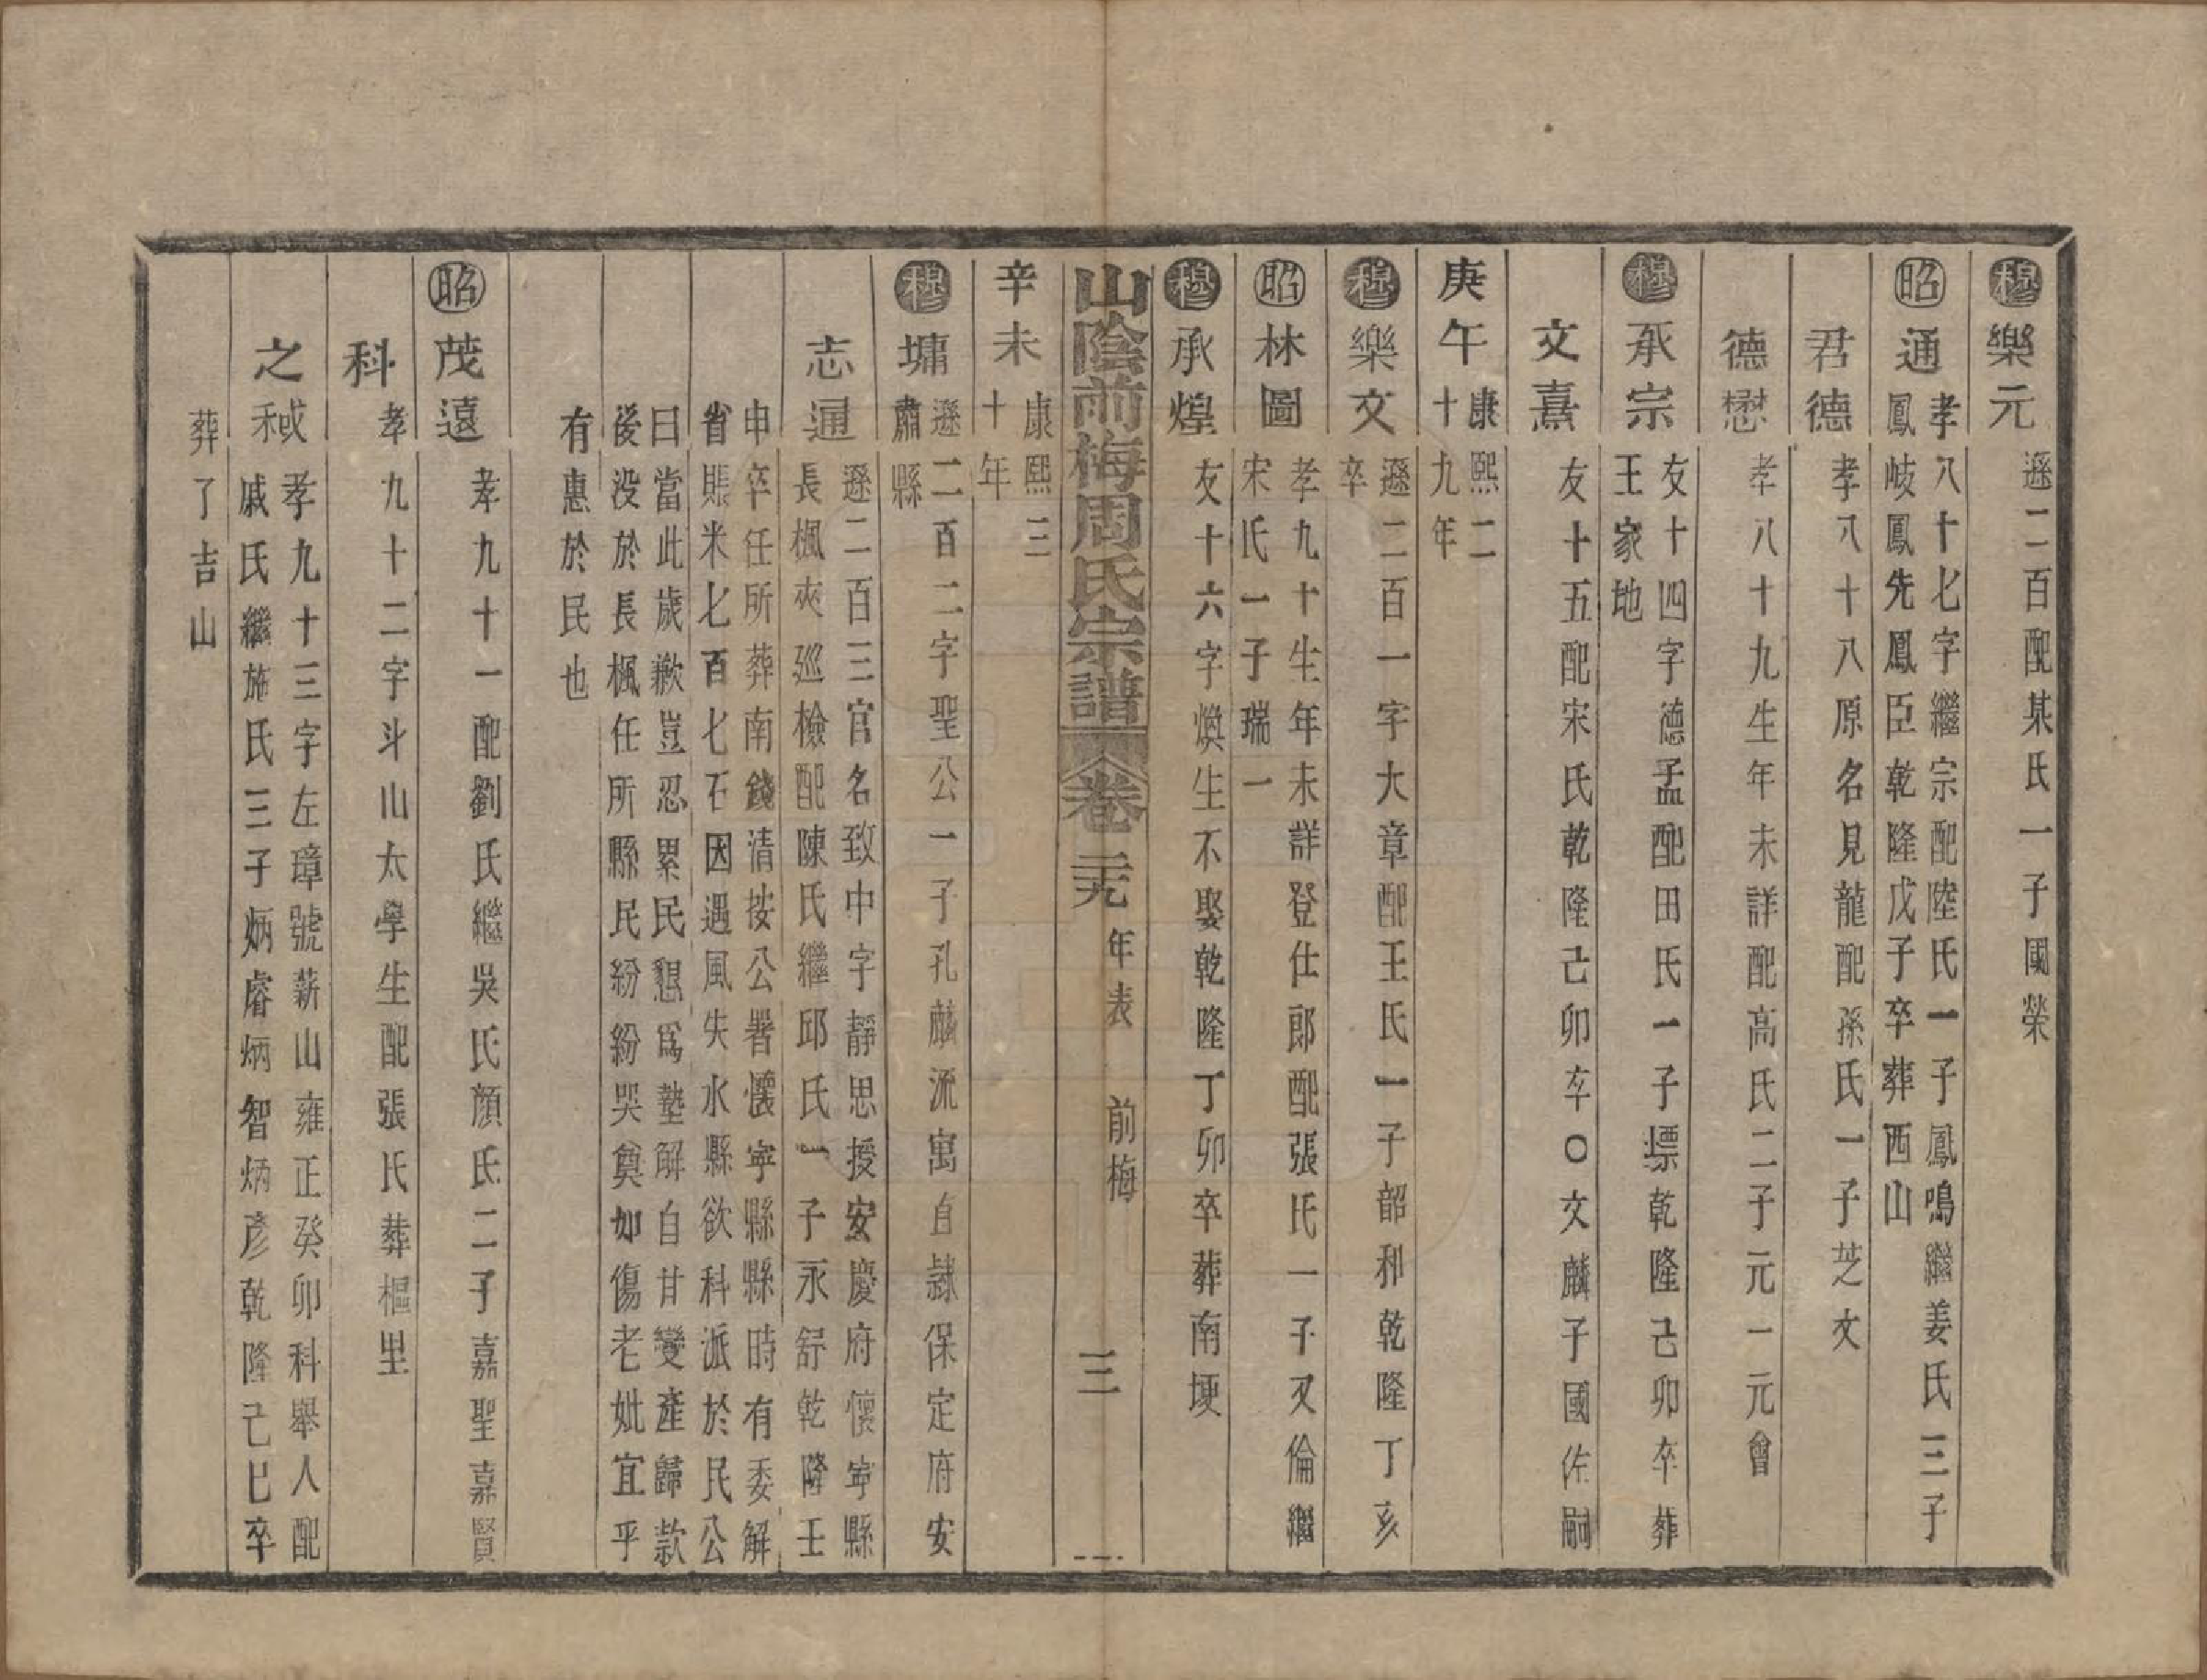 穆 樂元 遜二百配某氏一子國榮
昭 通 孝八十七字繼宗配陸氏一子鳳鳴繼姜氏三子
鳳岐鳳先鳳臣乾隆戊子卒葬西山
君德 孝八十八原名見龍配孫氏一子芝文
德懋 孝八十九生年未詳配高氏二子元一元曾
穆 承宗 友十四字德孟配田氏一子標乾隆己卯卒葬
王家地
文熹 友十五配宋氏乾隆己卯卒○文麟子國佐嗣
庚午 康熙二
十九年
穆 樂文 遜二百一字大章配王氏一子韶和乾隆丁亥
卒
昭 林圖 孝九十生年未詳登仕郎配張氏一子又倫繼
宋氏一子瑞一
穆 承煌 友十六字煥生不娶乾隆丁卯卒葬南埂
山陰前梅周氏宗譜 卷二十九 年表 前梅 三
辛未 康熙三
十年
穆 墉 遜二百二字聖公一子孔麟流寓直隸保定府安
肅縣
志通 遜二百三官名致中字靜思授安慶府懷寧縣
長楓夾巡檢配陳氏繼邱氏一子永舒乾隆壬
申卒任所葬南錢清按公署懷寧縣縣時有委解
省賬米七百七石因遇風失水縣欲科派於民公
曰當此歲歉豈忍累民懇爲墊解自甘變產歸款
後没於長楓任所縣民紛紛哭奠如傷老妣宜乎
有惠於民也
昭 茂遠 孝九十一配劉氏繼吳氏顏氏二子嘉聖嘉賢
科 孝九十二字斗山太學生配張氏葬樞里
之棫 孝九十三字左璋號薪山雍正癸卯科舉人配
戚氏繼施氏三子炳睿炳智炳彥乾隆己巳卒
葬了吉山